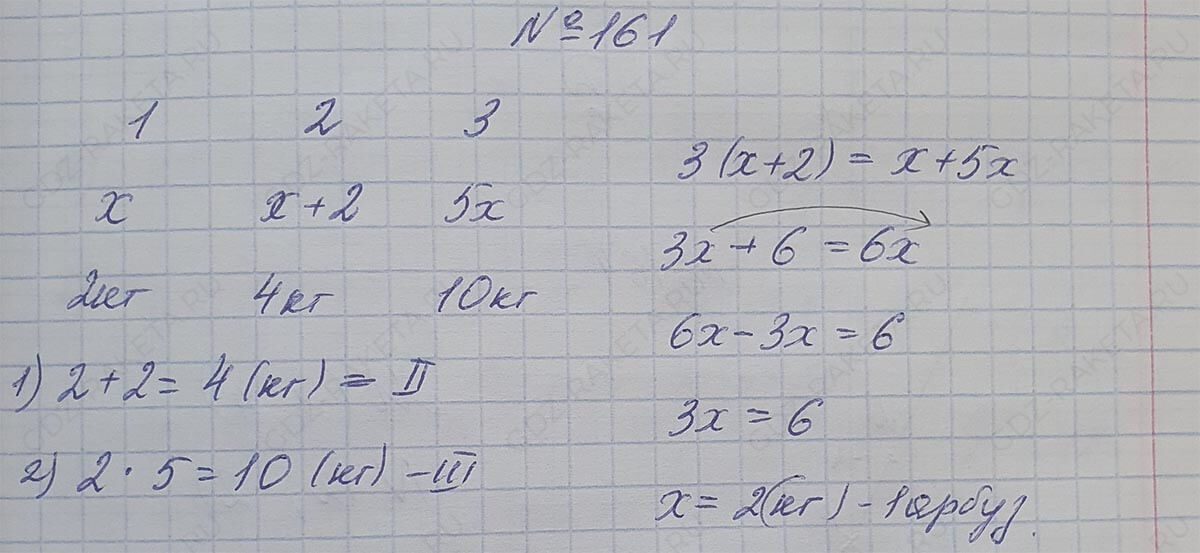 №161
1 2 3
x x+2 5x
2кг 4кг 10кг
1) 2+2= 4 (кг) = II
2) 2 · 5 = 10 (кг) - III
3(x+2) = x+5x
3x + 6 = 6x
6x - 3x = 6
3x = 6
x = 2(кг) - 1 арбуз.